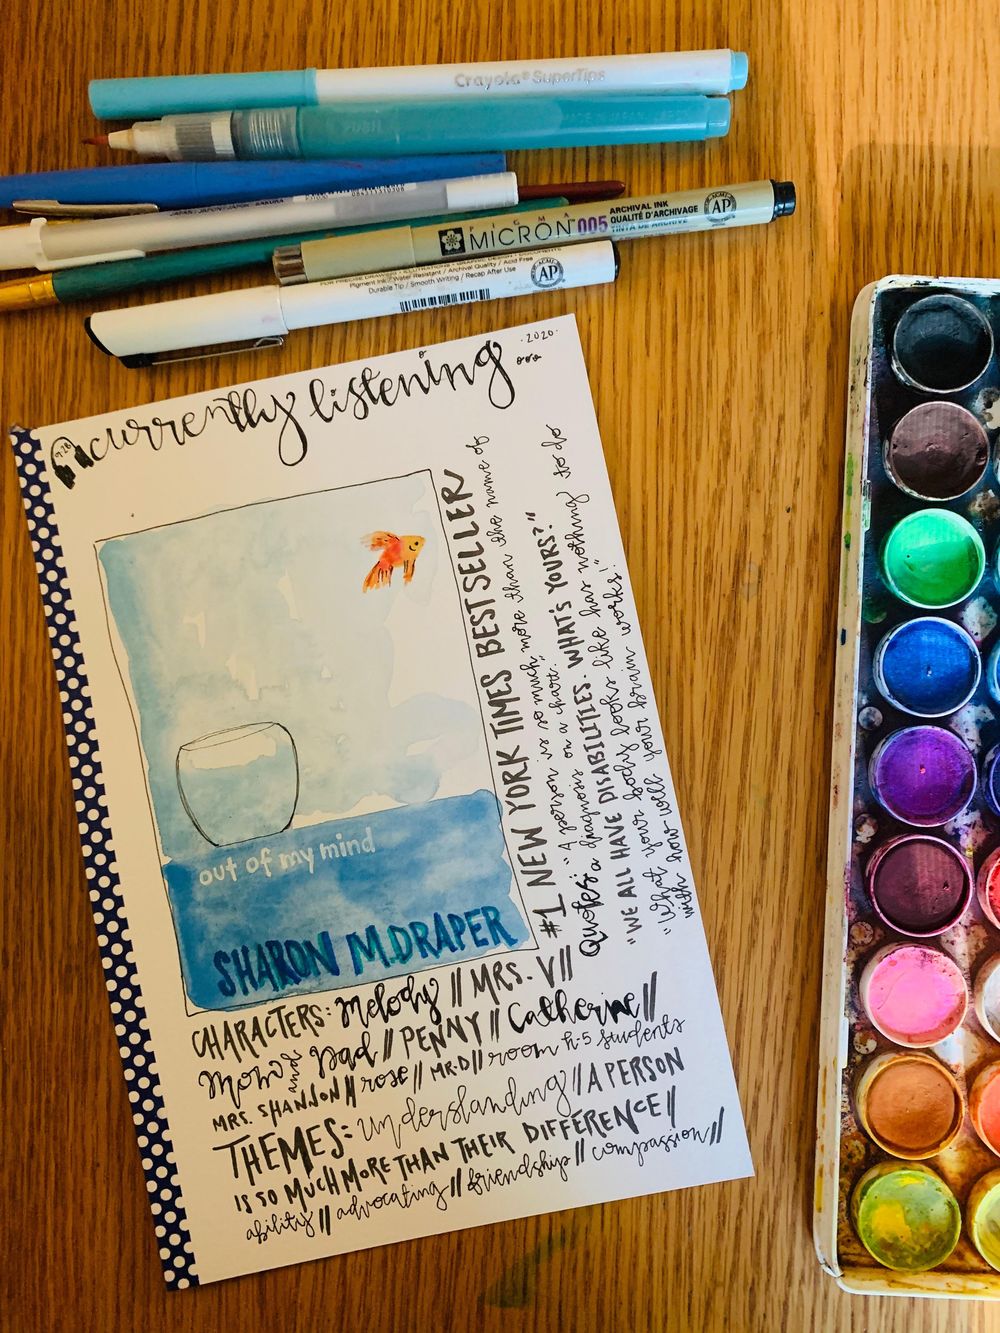 Crayola® SuperTips
JAPAN/JAPON/JAPÓN SAKURA
PIGMA
MICRON™ 005
ARCHIVAL INK
QUALITÉ D'ARCHIVAGE
TINTA DE ARCHIVE
ACMI
AP
Pigment Ink / Water Resistant / Archival Quality / Acid Free
Durable Tip / Smooth Writing / Recap After Use
ACMI
AP
9.28
currently listening...
·2020·
out of my mind
SHARON M. DRAPER
#1 NEW YORK TIMES BESTSELLER
Quotes: "A person is so much more than the name of
a diagnosis on a chart."
"WE ALL HAVE DISABILITIES. WHAT'S YOURS?"
"What your body looks like has nothing to do
with how well your brain works!"
CHARACTERS: Melody // MRS. V //
Mom and Dad // PENNY // Catherine //
MRS. SHANNON // rose // MR.D // room h-5 students
THEMES: understanding // A PERSON
IS SO MUCH MORE THAN THEIR DIFFERENCE //
ability // advocating // friendship // compassion //